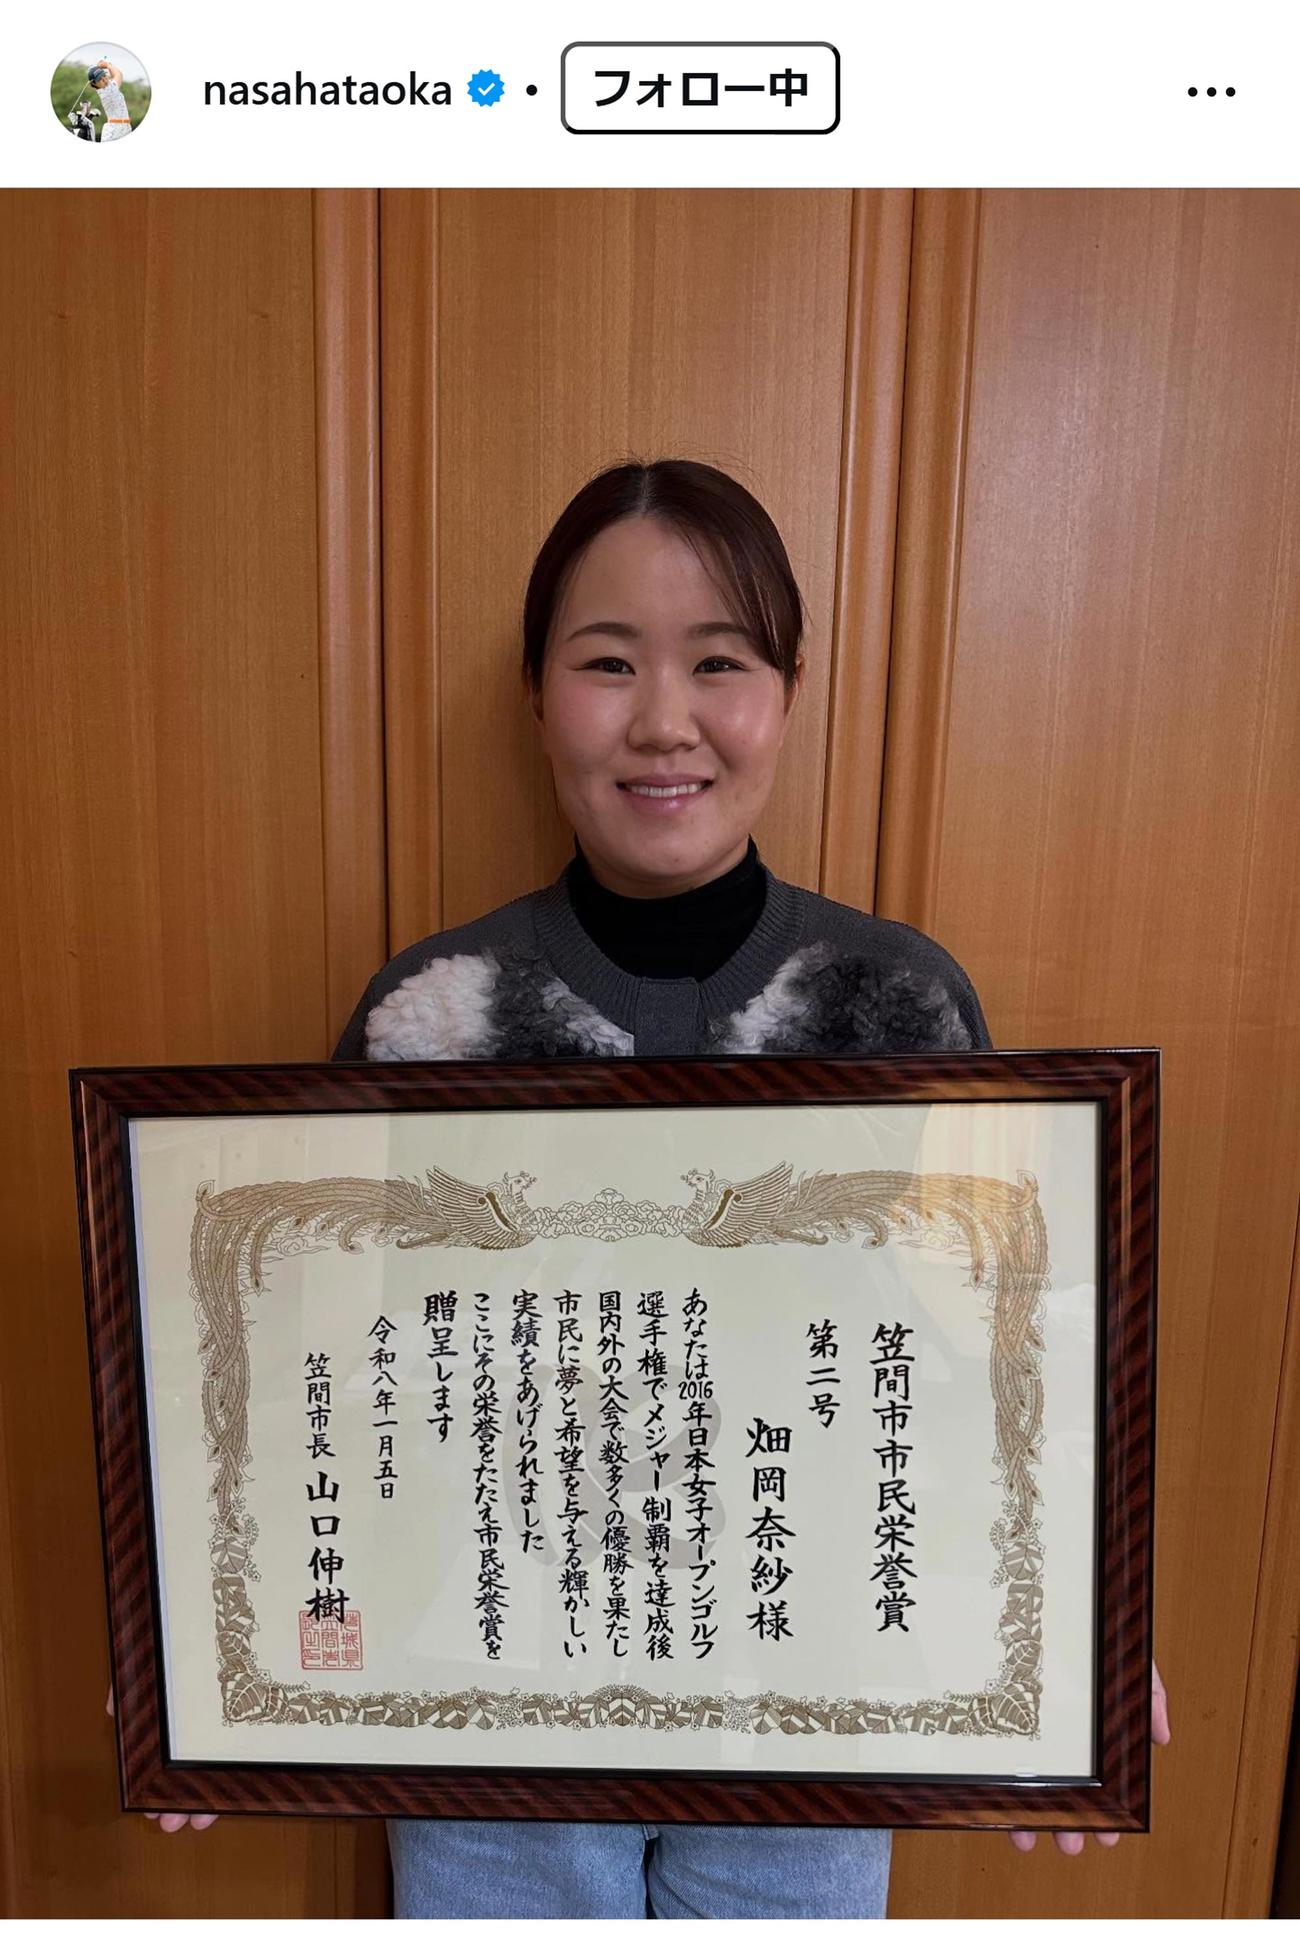 nasahataoka
フォロー中
笠間市市民栄誉賞
第二号
畑岡奈紗様
あなたは2016年日本女子オープンゴルフ
選手権でメジャー制覇を達成後
国内外の大会で数多くの優勝を果たし
市民に夢と希望を与える輝かしい
実績をあげられました
ここにその栄誉をたたえ市民栄誉賞を
贈呈します
令和八年一月五日
笠間市長 山口伸樹